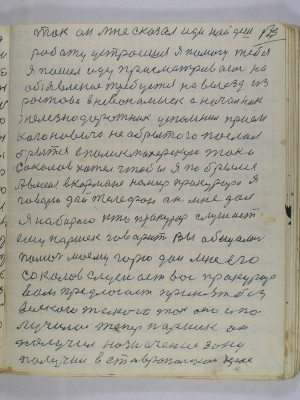 так он мне сказал иди найдеш
работу устроишся я помогу тебя
я пошел иду присматриваюсь на
обявления требуется на выезд из
ростова вневономысск а начальник
железнодорожник упомнил прием
кагоновича не обритого послал
бритса в поликмахерскую так и
Соколов хотел чтобы я побрился
Авменя вкармане номер прокурора я
говорю дай телефон он мне дал
я набираю кто прокурор слушает
ему паршек говарит Вы обещали
помоч моему горю дам мне его
соколов слушает вас прокурор
вам предлогает принять без
всякого такого так он и по
лучило тепу паршек он
получил назначение зону
получил в ставропольском крае